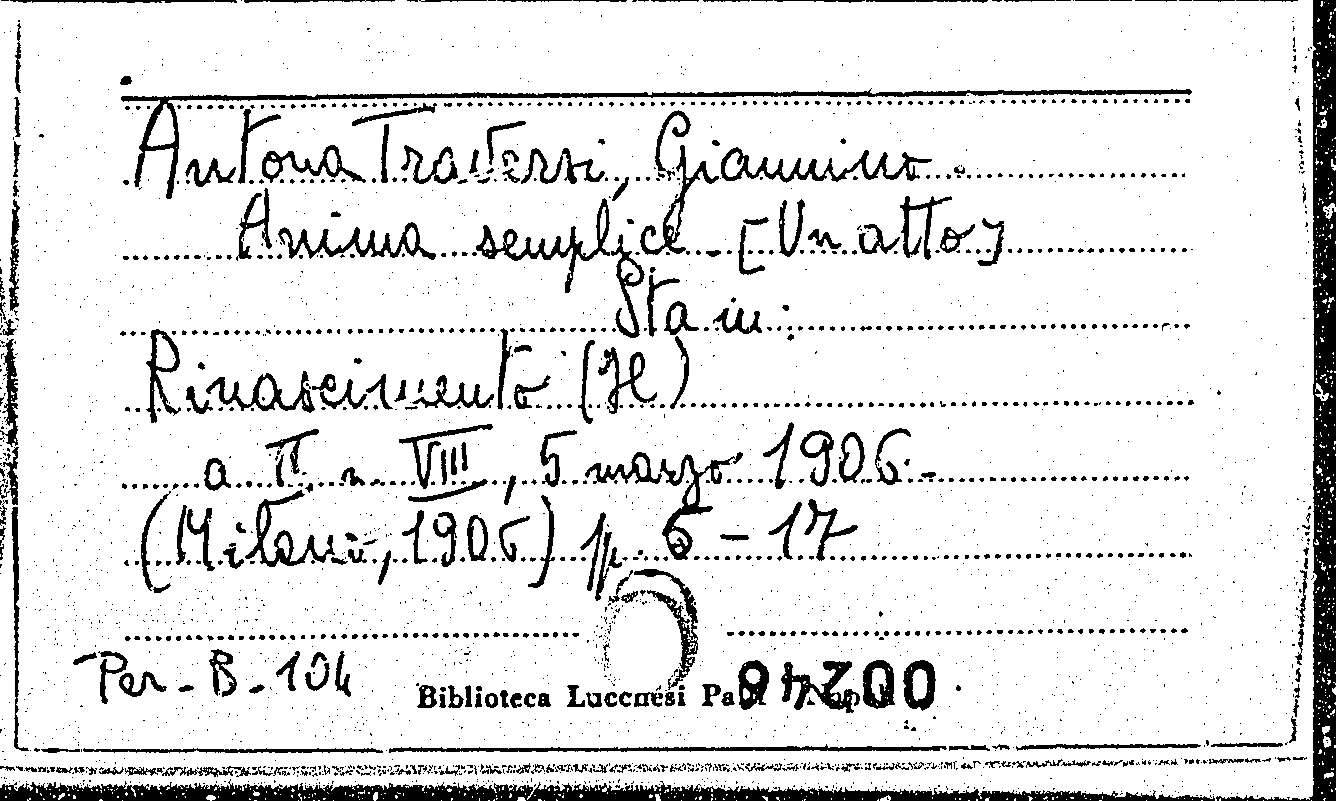 Antona Traversi, Giannino.
Anima semplice - [Un atto]
Sta in:
Rinascimento (Il)
a. II. n. VIII, 5 marzo 1906.-
(Milano, 1906) pp. 5 - 17
Per - B - 104
Biblioteca Lucchesi Palli Napoli
002246